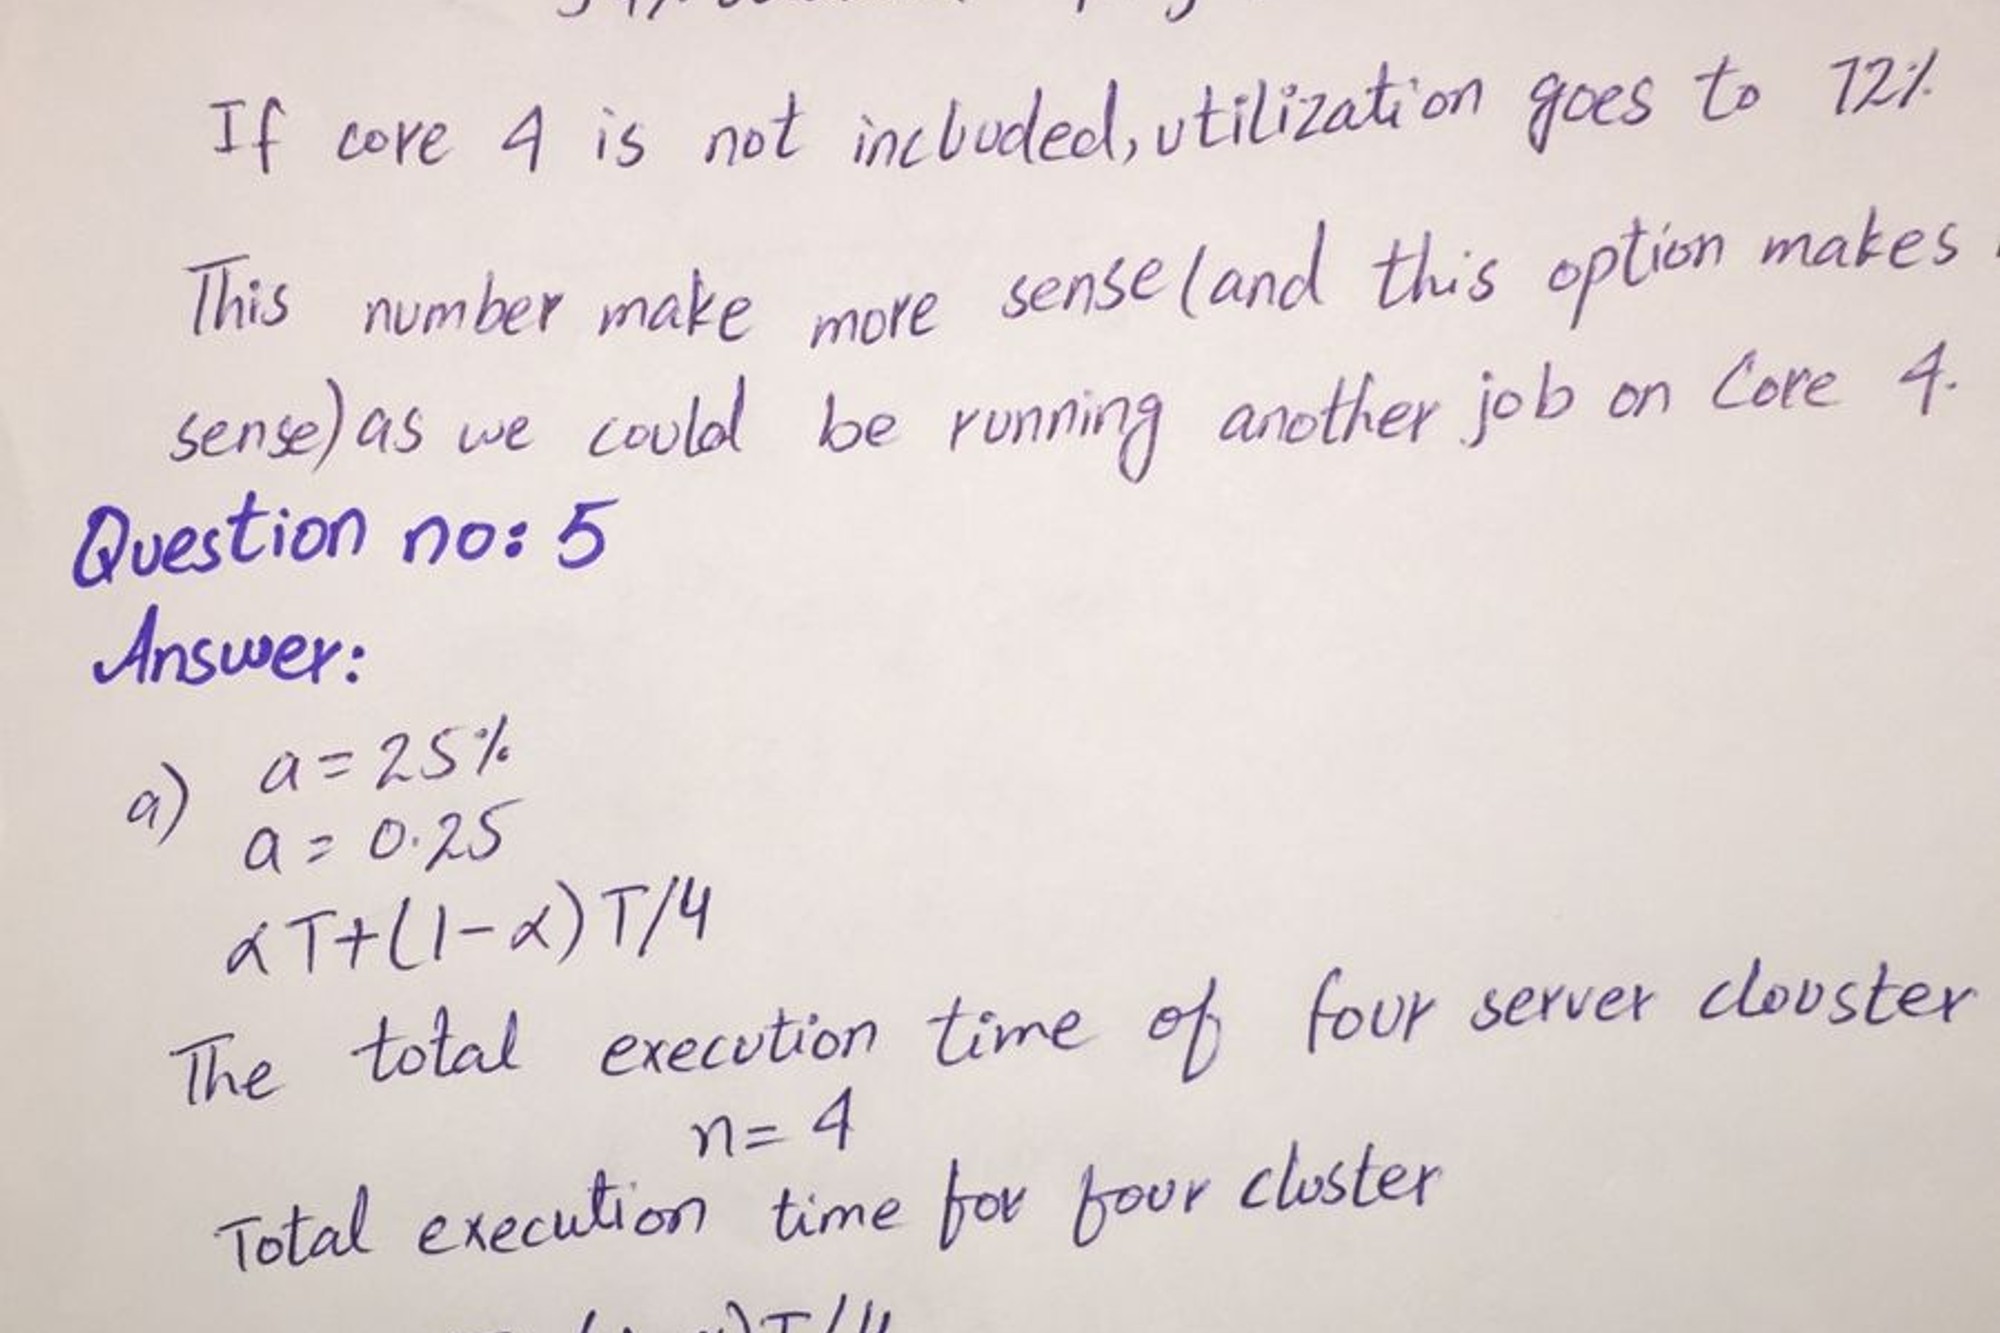 If core 4 is not incbuded, utilization goes to 72%
This number make more sense (and this option makes
sense) as we could be running another job on Core 4.
Question no: 5
Answer:
a) a = 25%
a = 0.25
αT+(1-α)T/4
The total execution time of four server clouster
n = 4
Total execution time for four cluster